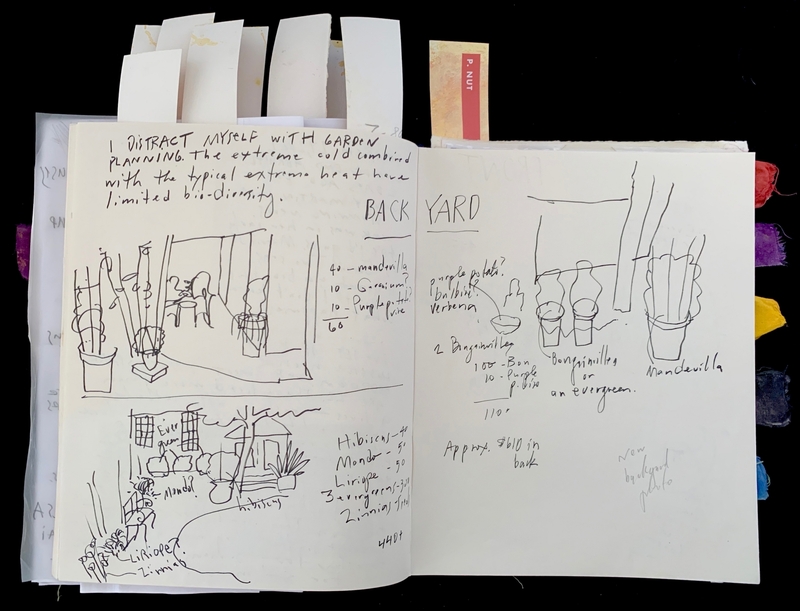 P. NUT
I DISTRACT MYSELF WITH GARDEN
PLANNING. The extreme cold combined
with the typical extreme heat have
limited bio-diversity.
BACK YARD
40 - mandevilla
10 - Geranium?
10 - Purple potato
vine
60
Ever
green
Mondo?
hibiscus
Liriope?
Zinnias
Hibiscus - 40
Mondo - 50
Liriope - 50
3 evergreens -
Zinnias -
440+
purple potato?
bulbine?
verbena
2 Bougainvillea
100 - Bou
10 - Purple
110+
Bougainvillea
or
an evergreen.
Mandevilla
Approx. $610 in
back
backyard
photo